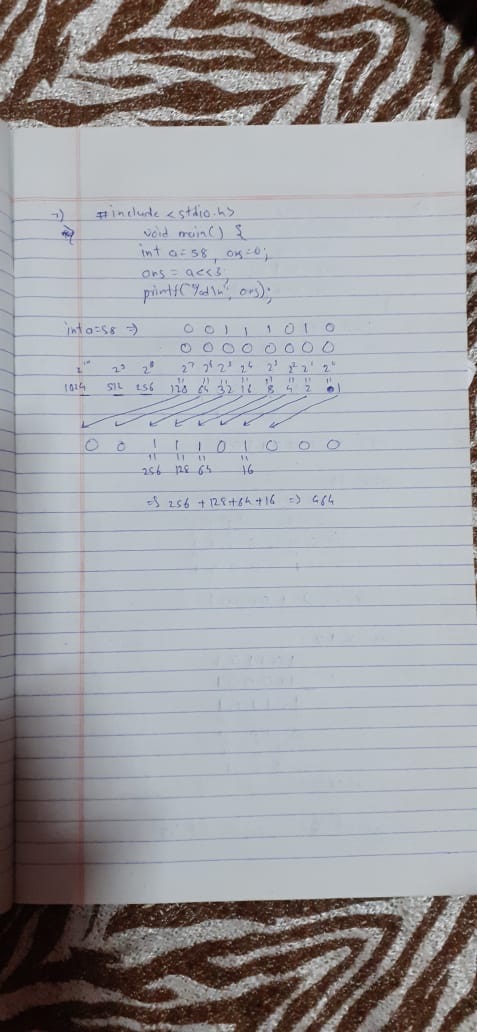 7) #include <stdio.h>
void main() {
int a=58, ans=0;
ans = a<<3;
printf("%d\n", ans);
int a=58 => 0 0 1 1 1 0 1 0
0 0 0 0 0 0 0 0
2¹⁰ 2⁹ 2⁸ 2⁷ 2⁶ 2⁵ 2⁴ 2³ 2² 2¹ 2⁰
1024 512 256 128 64 32 16 8 4 2 1
0 0 1 1 1 0 1 0 0 0 0
256 128 64 16
=> 256 + 128 + 64 + 16 => 464